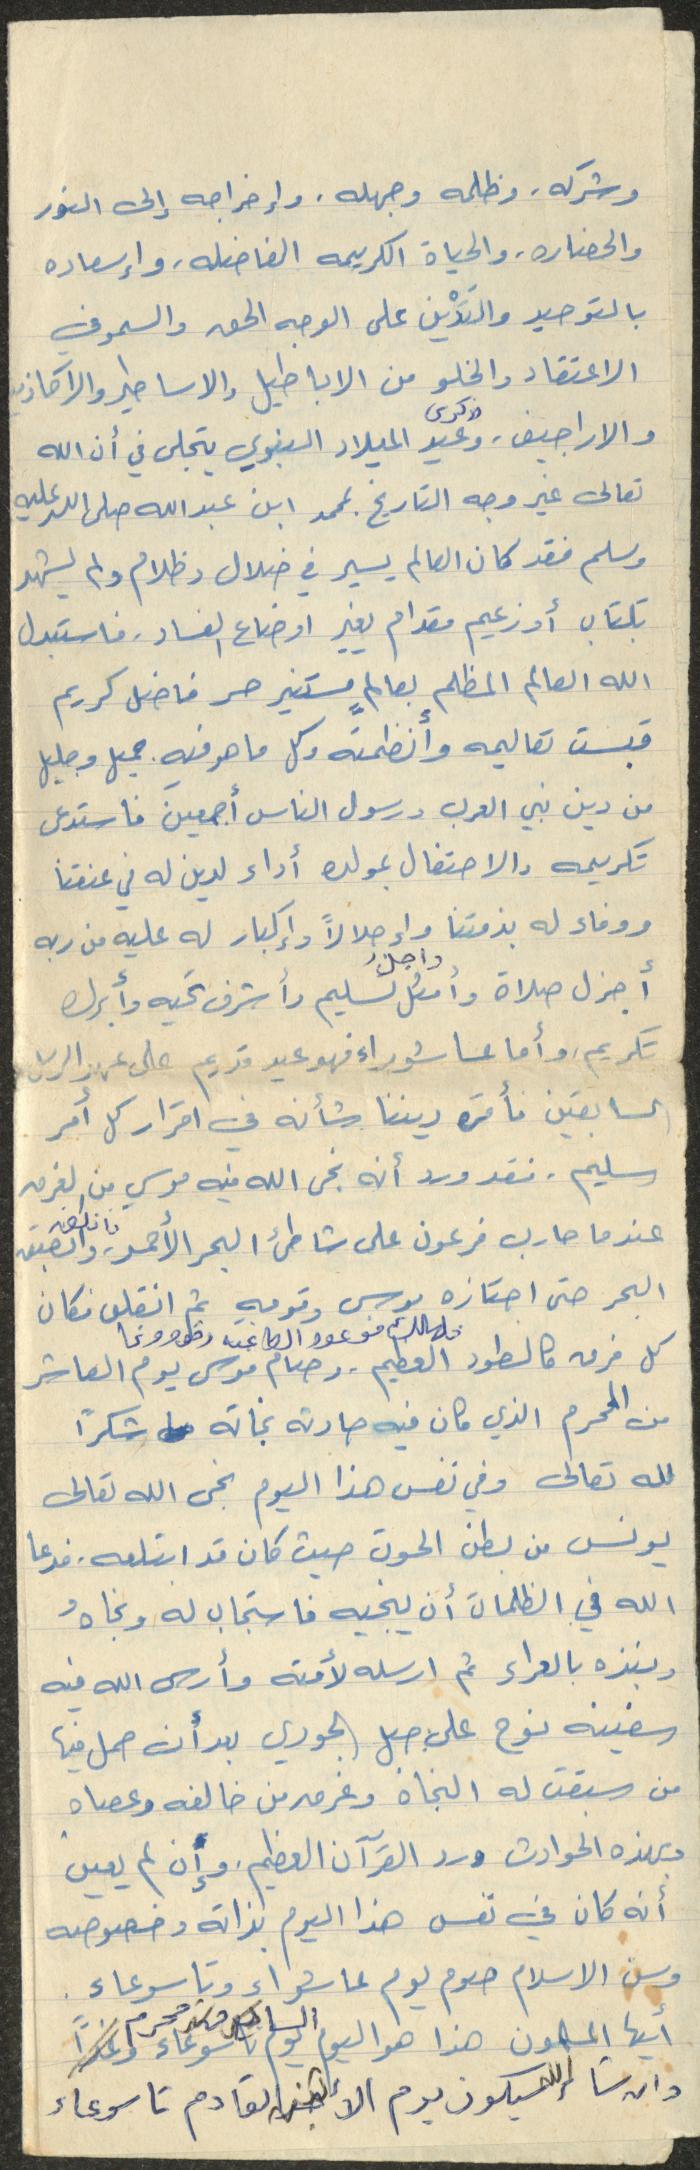 وشركه، وظلمه وجهله، وإخراجه إلى النور
والحضاره، والحياة الكريمه الفاضله، وإسعاده
بالتوحيد والتَدَّين على الوجه الحق والسمو في
الاعتقاد والخلو من الاباطيل والاساطير والاكاذيب
والاراجيف، وعيد ذكرى الميلاد النبوي يتجلى في أن الله
تعالى غير وجه التاريخ بمحمد ابن عبدالله صلى الله عليه
وسلم فقد كان العالم يسير في ضلال وظلام ولم يشهد
بكتاب أو زعيم مقدام يغير اوضاع الفساد، فاستبدل
الله العالم المظلم بعالمٍ مستنير حر فاضل كريم
قبست تعاليمه وأنظمته وكل ما هو فيه جميل وجليل
من دين نبي العرب ورسول الناس أجمعين فاستدعى
تكريمه والاحتفال بمولده أداء لدين له في عنقنا
ووفاء له بذمتنا وإجلالاً وإكبار له عليه من ربه
أجزل صلاة وأمثل واجل تسليم وأشرف تحيه وأبرك
تكريم، وأما عاشوراء فهو عيد قديم على عهد الرسل
السابقين فأقره ديننا شأنه في اقرار كل أمر
سليم، فقد ورد أنه نجى الله فيه موسى من الغرق
عندما حارب فرعون على شاطئ البحر الأحمر، فانفلق وانطبق
البحر حتى اجتازه موسى وقومه ثم انفلق فكان
كل فرق كالطود العظيم، فهلك فرعون الطاغيه وصام موسى يوم العاشر
من المحرم الذي كان فيه حادثة نجاته شكرًا
لله تعالى وفي نفس هذا اليوم نجى الله تعالى
يونس من بطن الحوت حيث كان قد ابتلعه، فدعا
الله في الظلمات أن ينجيه فاستجاب له ونجاه
ونبذه بالعراء ثم ارسله لأمته وأرسى الله فيه
سفينه نوح على جبل الجودي بعد أن حمل فيها
من سبقت له النجاة وغرق من خالفه وعصاه
وبهذه الحوادث ورد القرآن العظيم، وإن لم يعين
أنه كان في نفس هذا اليوم بذاته وخصوصه
وسن الاسلام صوم يوم عاشوراء وتاسوعاء.
أيها المسلمون هذا هو اليوم السابع من محرم
وان شاء الله سيكون يوم الأثنين القادم تاسوعاء